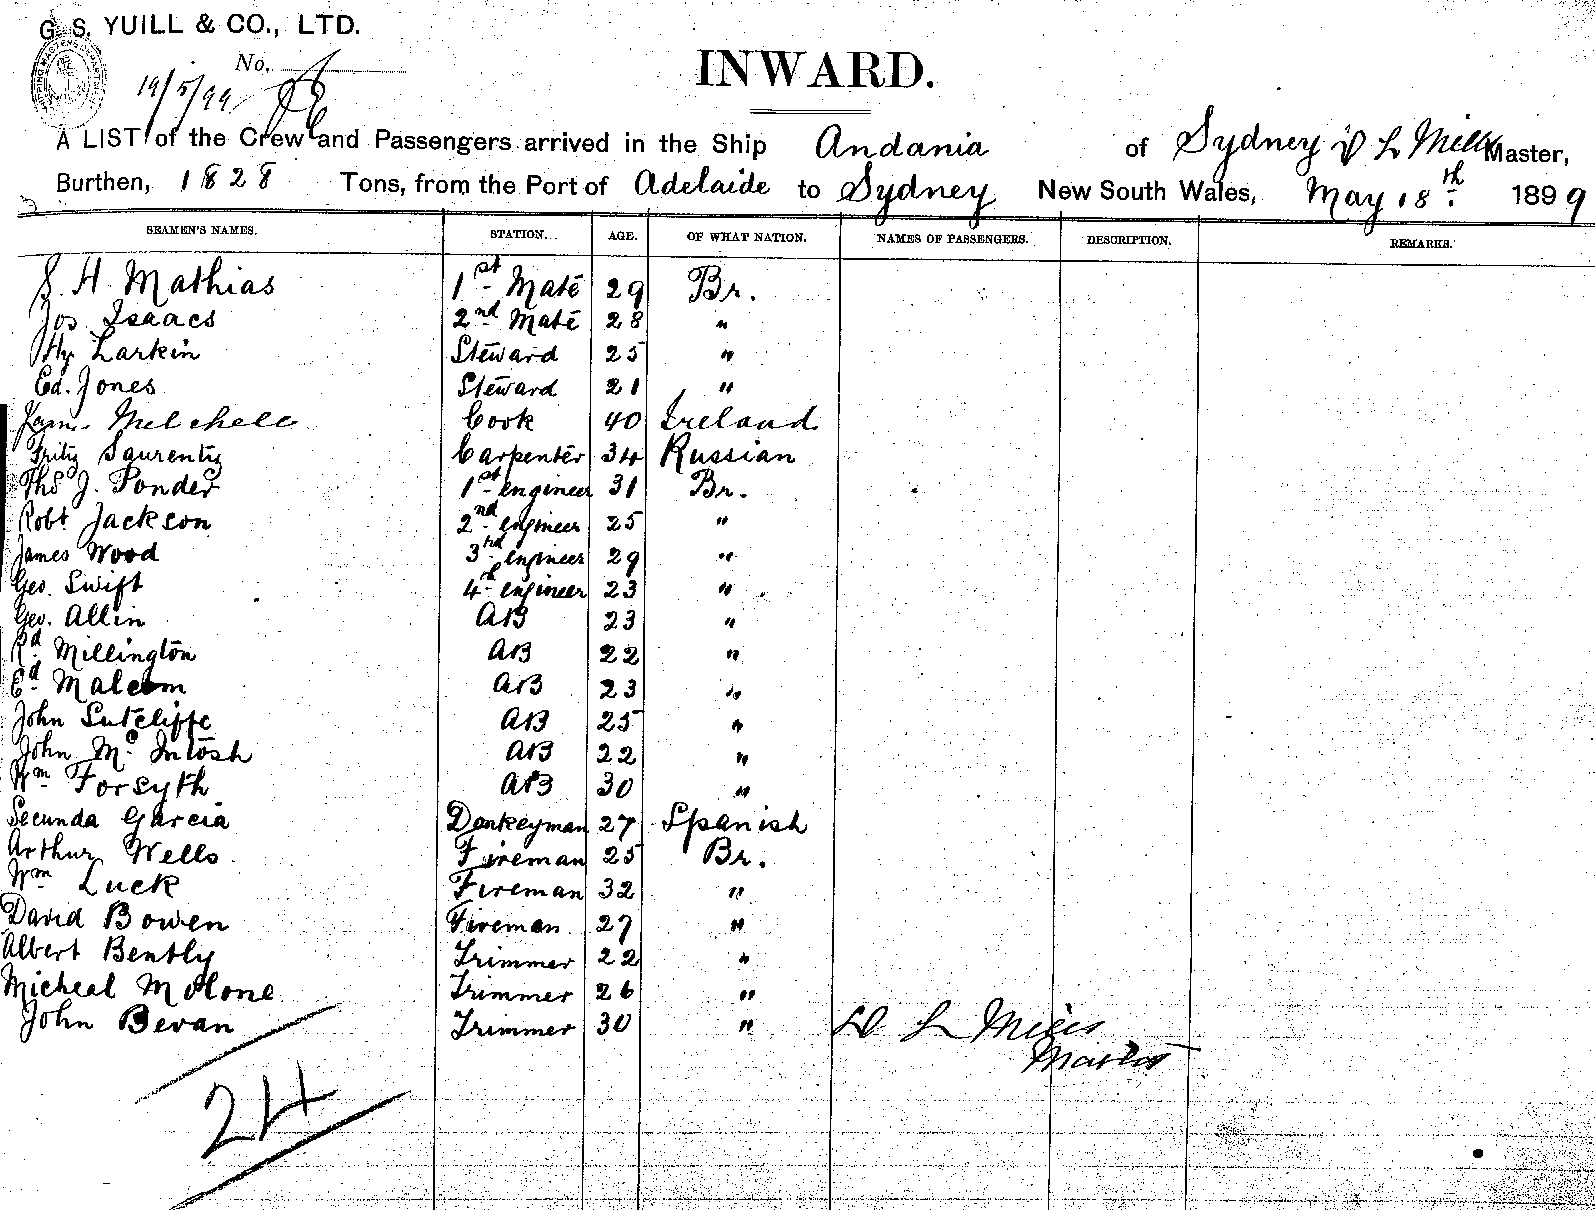 G. S. YUILL & CO., LTD.
No.
19/5/99
INWARD.
A LIST of the Crew and Passengers arrived in the Ship Andania of Sydney D L Mills Master,
Burthen, 1828 Tons, from the Port of Adelaide to Sydney New South Wales, May 18th 1899
SEAMEN'S NAMES. STATION. AGE. OF WHAT NATION. NAMES OF PASSENGERS. DESCRIPTION. REMARKS.
H. Mathias 1st Mate 29 Br.
Jos. Isaacs 2nd Mate 28 "
Hy Larkin Steward 25 "
Ed. Jones Steward 21 "
Jam. Mitchell Cook 40 Ireland
Fritz Saurentz Carpenter 34 Russian
Thos J. Ponder 1st engineer 31 Br.
Robt Jackson 2nd engineer 25 "
James Wood 3rd engineer 29 "
Geo. Swift 4th engineer 23 "
Geo. Allin AB 23 "
Rd Millington AB 22 "
Ed Malcom AB 23 "
John Sutcliffe AB 25 "
John Mc Intosh AB 22 "
Wm Forsyth AB 30 "
Secunda Garcia Donkeyman 27 Spanish
Arthur Wells Fireman 25 Br.
Wm Luck Fireman 32 "
David Bowen Fireman 27 "
Albert Bently Trimmer 22 "
Micheal Molone Trimmer 26 "
John Bevan Trimmer 30 " D L Mills
Master
24